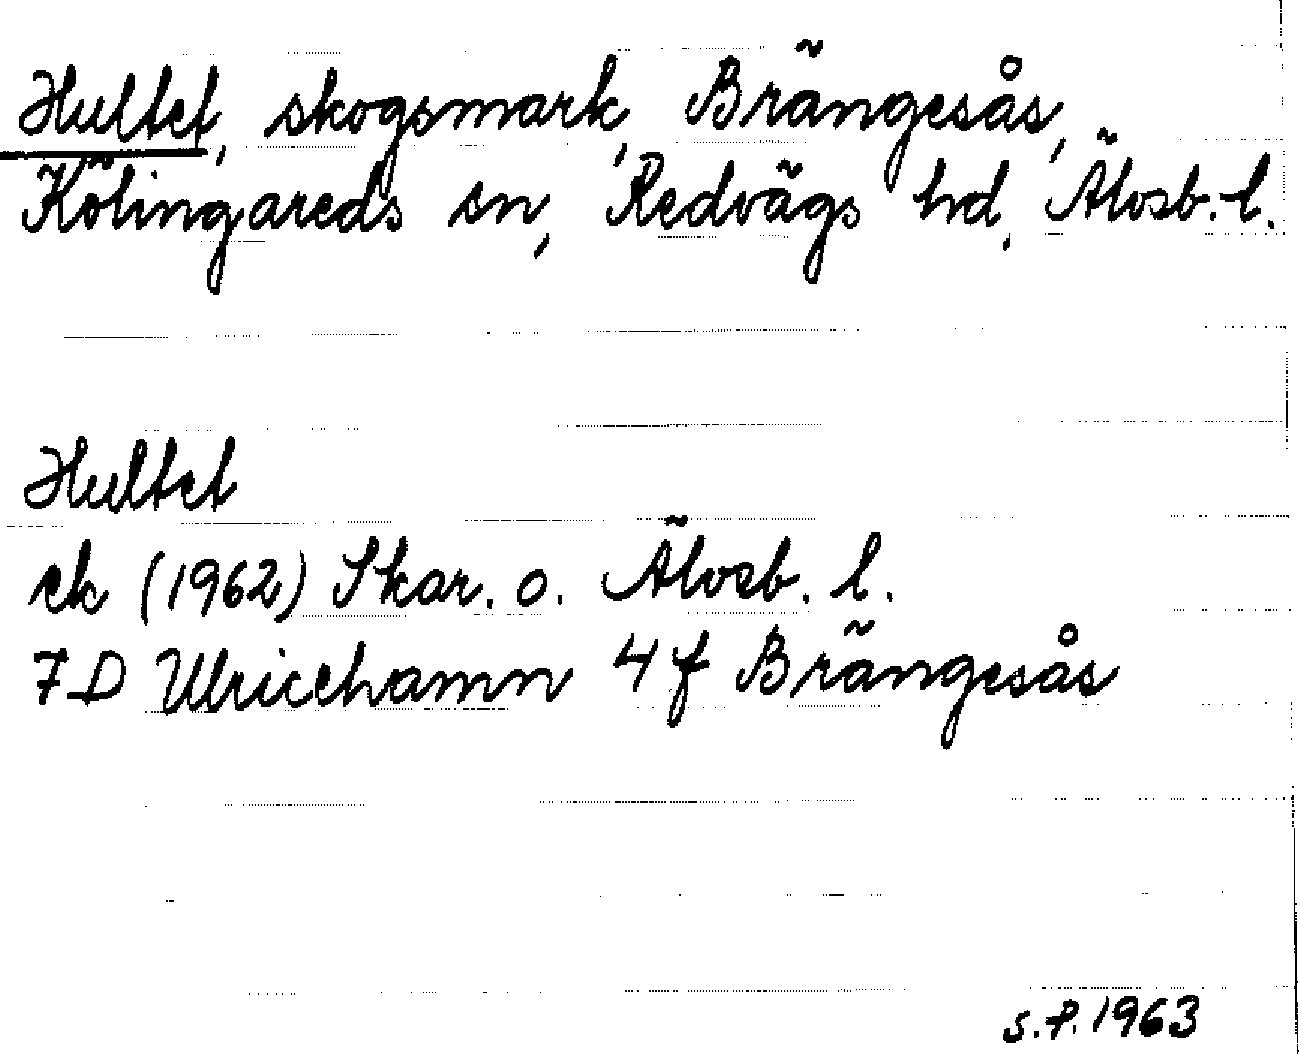 Hultet, skogsmark, Brängesås,
Kölingareds sn, Redvägs hd, Älvsb. l.
Hultet
ek (1962) Skar. o. Älvsb. l.
7D Ulricehamn 4f Brängesås
S.P. 1963